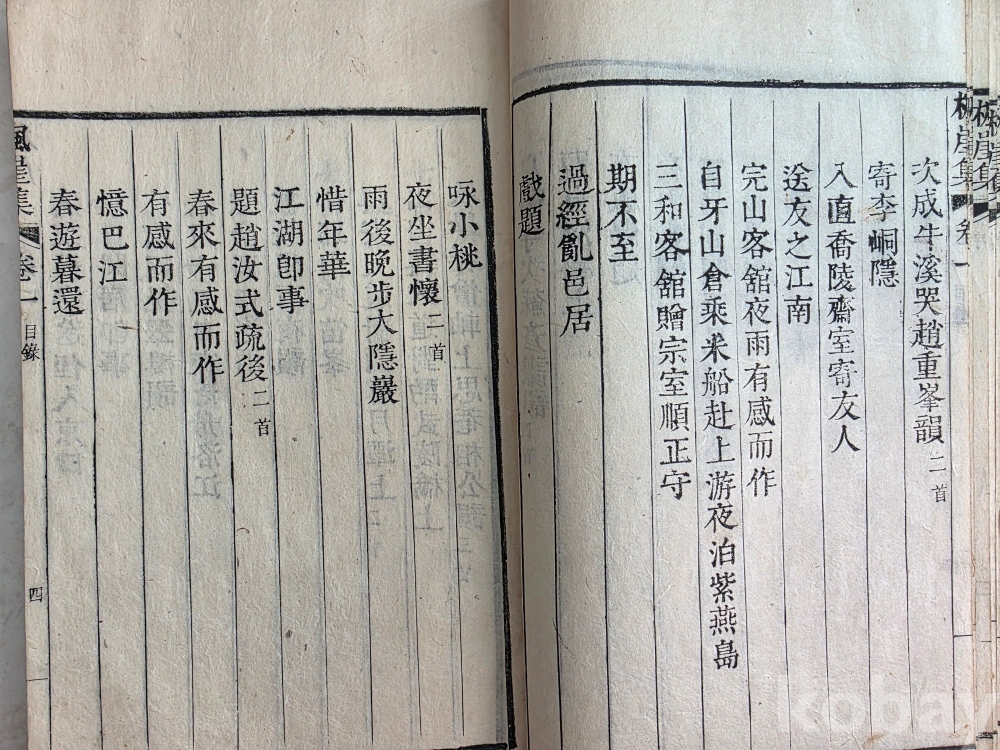 次成牛溪哭趙重峯韻 二首
寄李峒隱
入直喬陵齋室寄友人
送友之江南
完山客舘夜雨有感而作
自牙山倉乘米船赴上游夜泊紫燕島
三和客舘贈宗室順正守
期不至
過經亂邑居
戲題
咏小桃
夜坐書懷 二首
雨後晚步大隱巖
惜年華
江湖卽事
題趙汝式疏後 二首
春來有感而作
有感而作
憶巴江
春遊暮還
楓崖集 卷一 目錄 四
kobay